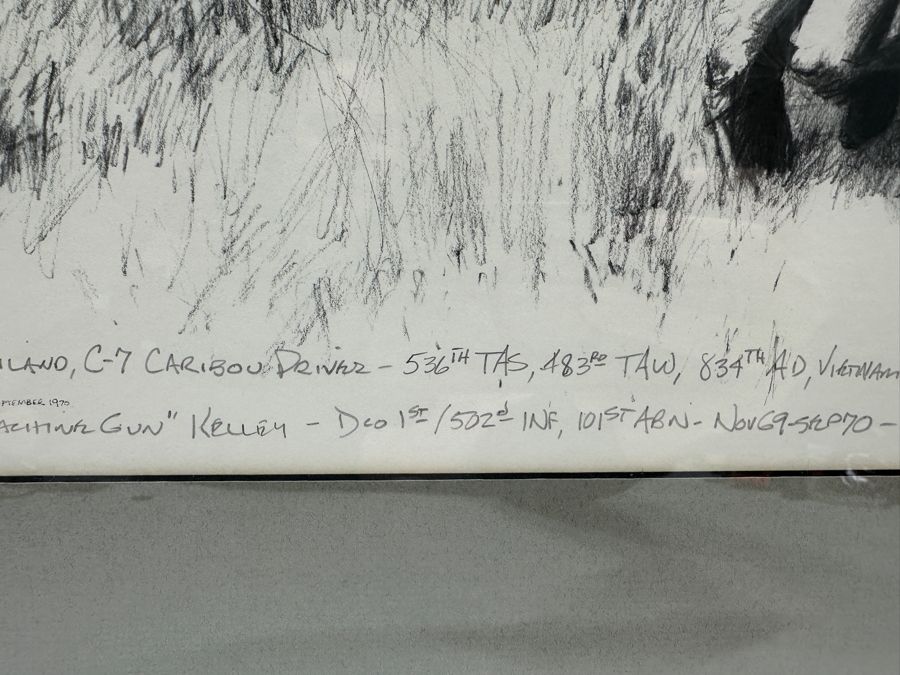 ILAND, C-7 CARIBOU DRIVER - 536TH TAS, 483RD TAW, 834TH AD, VIETNAM
TEMBER 1970
ACHINE GUN" KELLEY - DCO 1ST/502d INF, 101ST ABN - NOV69-SEP70 -